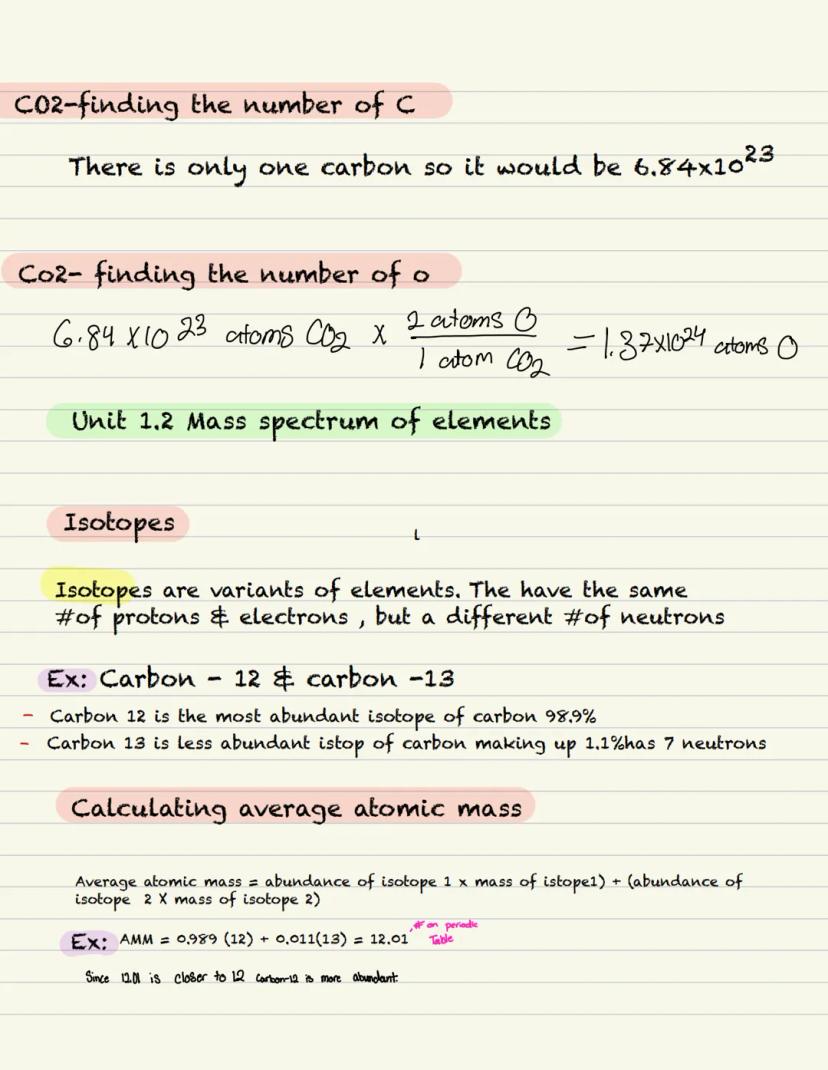 CO2-finding the number of C
There is only one carbon so it would be 6.84x10²³
Co2- finding the number of o
6.84 X10²³ atoms CO₂ x 2 atoms O / 1 atom CO₂ = 1.37x10²⁴ atoms O
Unit 1.2 Mass spectrum of elements
Isotopes
Isotopes are variants of elements. The have the same
#of protons & electrons , but a different #of neutrons
Ex: Carbon - 12 & carbon -13
- Carbon 12 is the most abundant isotope of carbon 98.9%
- Carbon 13 is less abundant istop of carbon making up 1.1%has 7 neutrons
Calculating average atomic mass
Average atomic mass = abundance of isotope 1 x mass of istope1) + (abundance of
isotope 2 X mass of isotope 2)
Ex: AMM = 0.989 (12) + 0.011(13) = 12.01
# on periodic
Table
Since 12.01 is closer to 12 carbon-12 is more abundant.